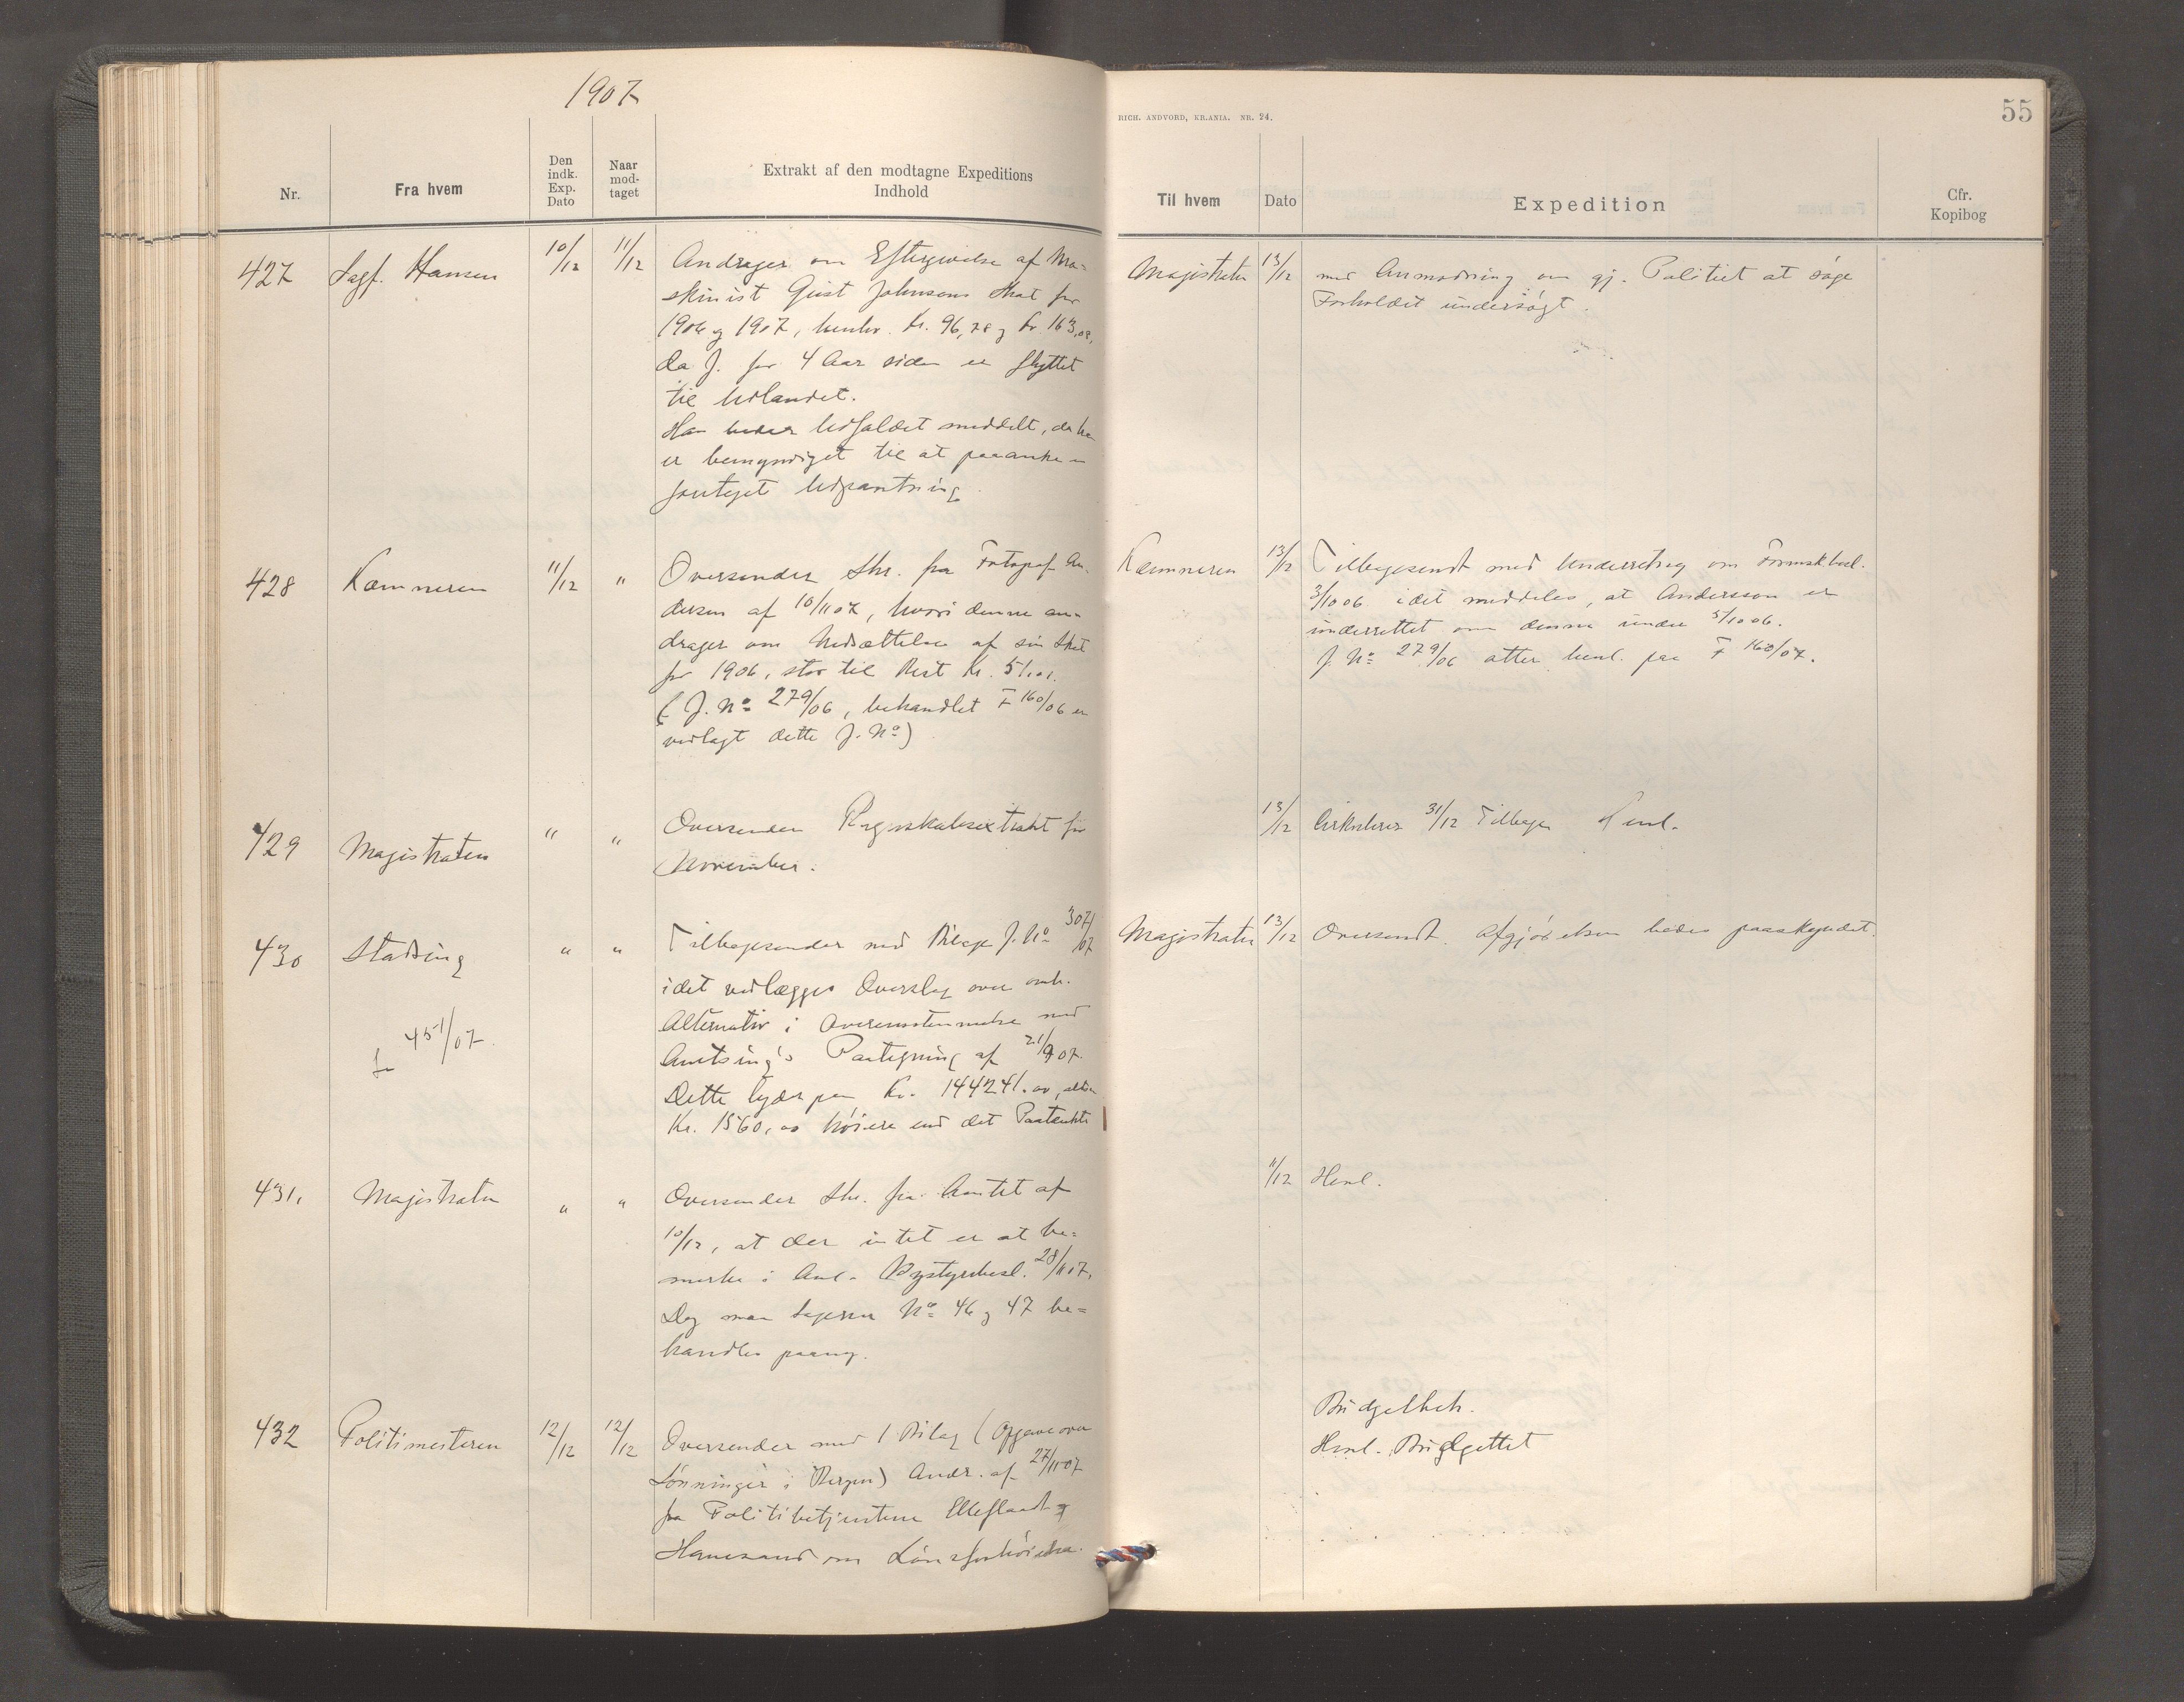 1907
Nr.
Fra hvem
Den indk. Exp. Dato
Naar modtaget
Extrakt af den modtagne Expeditions Indhold
427 Sagf. Hansen 10/12 11/12 Andrager om Eftergivelse af Ma-
skinist Gust Johnsons Skat for
1906 og 1907, henhv. Kr. 96,78 og Kr. 163,02,
da J. for 4 Aar siden er flyttet
til Udlandet.
Han beder Udfaldet meddelt, da han
er bemyndiget til at paaanke en
foretaget Udpantning.
428 Kæmneren 11/12 " Oversender Skr. fra Fotograf An-
dersen af 10/11 07, hvori denne an-
drager om Nedsættelse af sin Skat
for 1906, stor til Rest Kr. 51,01.
(J. No 279/06, behandlet F 160/06 er
vedlagt dette J. No)
429 Magistraten " " Oversender Regnskabsextrakt for
November.
430 Stadsing " " Tilbagesender med Bilage J. No 307/07
idet vedlægges Overslag over omh.
Alternativ i Overensstemmelse med
Amtsing's Paategning af 21/9 07.
Dette lyder paa Kr. 144241.00, altsaa
Kr. 1560,00 höiere end det Paatænkte
451/07.
431. Magistraten " " Oversender Skr. fra Amtet af
10/12, at der intet er at be-
merke i Anl. Bystyrebesl. 28/11 07.
Dog maa Sagerne No 46 og 47 be-
handles paany.
432 Politimesteren 12/12 12/12 Oversender med 1 Bilag (Opgave over
Lönninger i Bergen) Andr. af 27/11 07
fra Politibetjentene Elleflaadt og
Hanesand om Lönsforhöielse.
RICH. ANDVORD, KR.ANIA. NR. 24.
55
Til hvem
Dato
Expedition
Cfr. Kopibog
Magistraten 13/12 med Anmodning om gj. Politiet at söge
Forholdet undersögt.
Kæmneren 13/12 Tilbagesendt med Underretning om Formskbesl.
3/10 06 idet meddeles, at Andersson er
underrettet om denne under 5/10 06.
J. No 279/06 atter henl. paa F 160/07.
13/12 Cirkulerer 31/12 Tilbage Henl.
Magistraten 13/12 Oversendt. Afgjörelsen bedes paaskyndet.
11/12 Henl.
Budgetbeh.
Henl. Budgettet